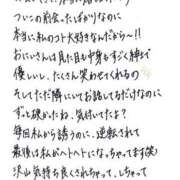 ついこの前会ったばかりなのに
本当に私のコト大好きなんだから〜!!
おにいさんは見た目も中身もすごく紳士で
優しいし、たくさん笑わせてくれるの
そしてただ隣にいてお話してるだけなのに
ずっと硬いね、気付いてた?
毎回私から誘うのに、逆転されて
最後は私がヘトヘトになっちゃってます(笑)
沢山気持ち良くされちゃって、しちゃって